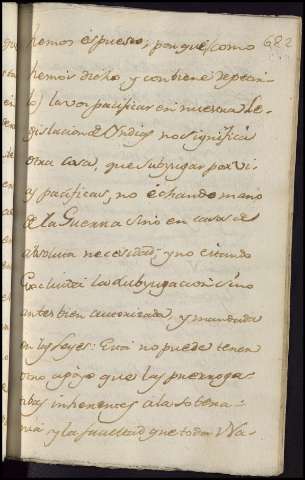 682
hemos espuesto; porque (como
hemos dicho, y conviene repetir
lo) la voz pacificar en nuestra Le
gislacion de Yndias no significa
otra cosa, que subyugar por vi
as pacificas, no echando mano
de la Guerra sino en casos de
absoluta necesidad; y no estando
excluida la subyugacion sino
antes bien autorizada, y mandada
en las Leyes: Esta no puede tener
otro apoyo que las prerroga-
tibas inherentes a la sobera-
nia y la facultad que toda Na-